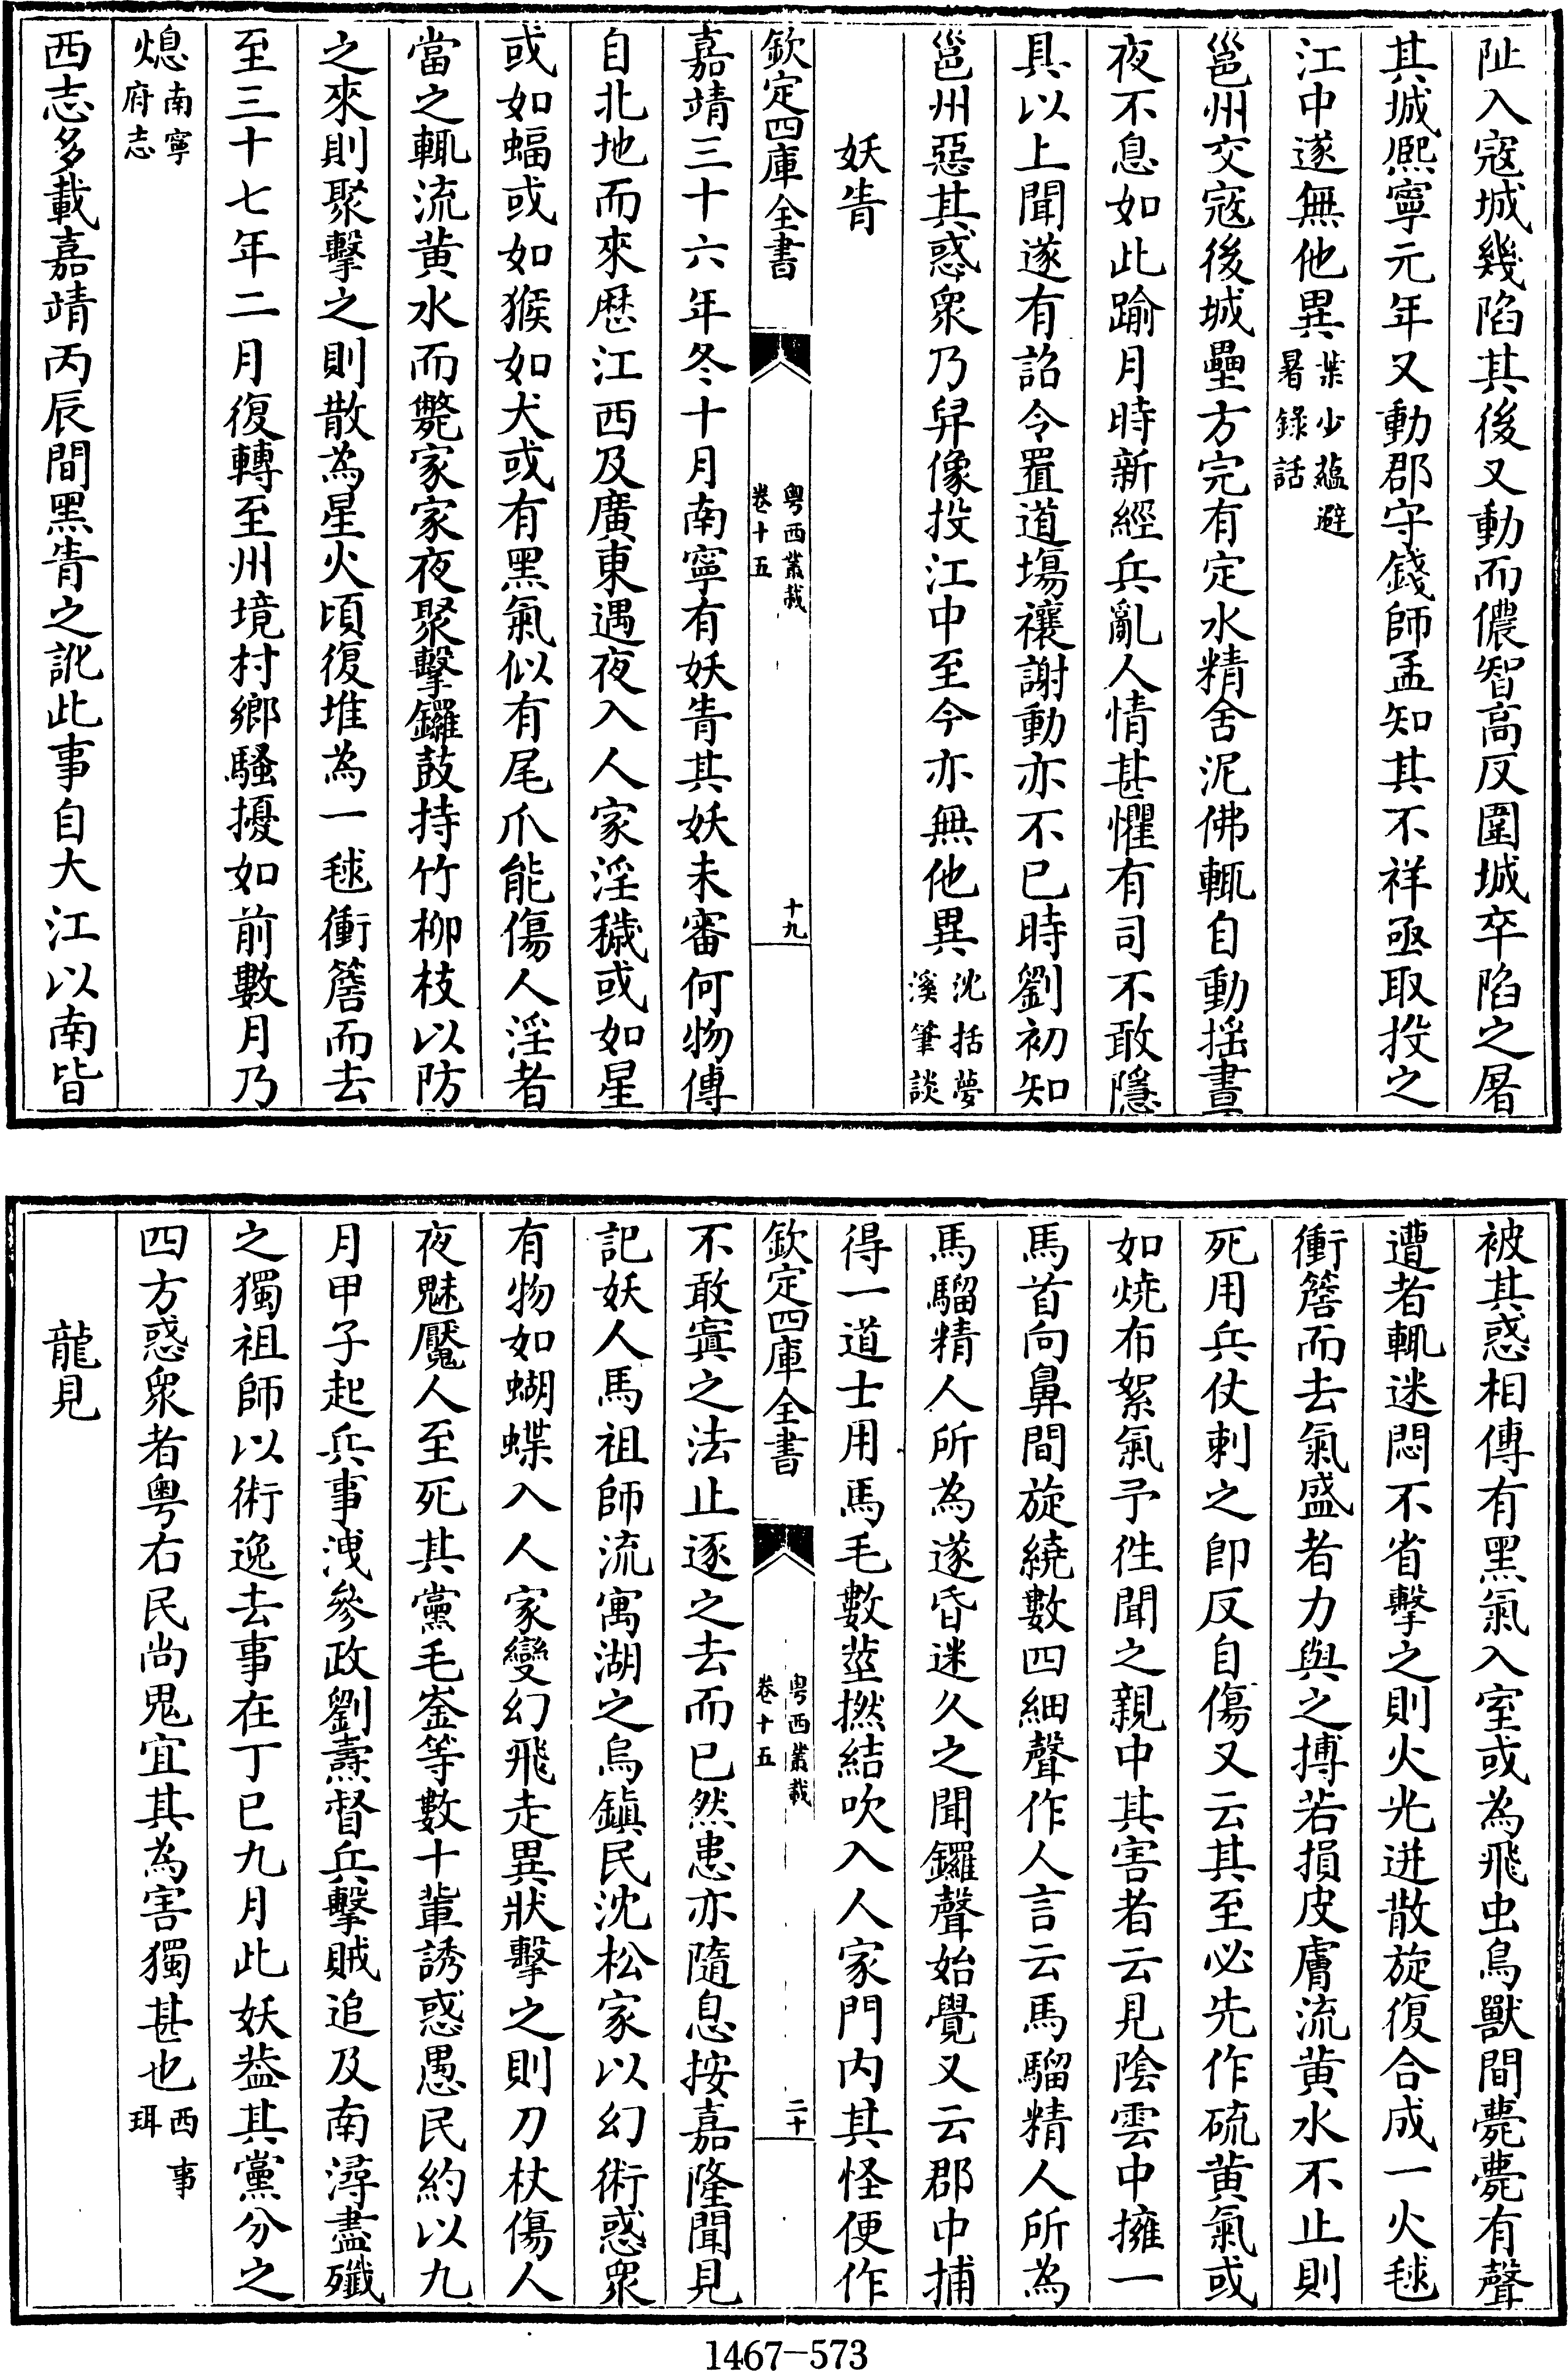 阯入寇城幾陷其後又動而儂智高反圍城卒陷之屠
其城熈寧元年又動郡守錢師孟知其不祥亟取投之
江中遂無他異葉少蘊避暑錄話
邕州交寇後城壘方完有定水精舍泥佛輒自動揺晝
夜不息如此踰月時新經兵亂人情甚懼有司不敢隱
具以上聞遂有詔令置道塲禳謝動亦不已時劉初知
邕州惡其惑衆乃舁像投江中至今亦無他異沈括夢溪筆談
妖眚
欽定四庫全書
粤西叢載
卷十五
十九
嘉靖三十六年冬十月南寧有妖眚其妖未審何物傳
自北地而來歴江西及廣東遇夜入人家淫穢或如星
或如蝠或如猴如犬或有黑氣似有尾爪能傷人淫者
當之輒流黄水而斃家家夜聚擊鑼鼓持竹柳枝以防
之來則聚擊之則散為星火頃復堆為一毬衝簷而去
至三十七年二月復轉至州境村鄉騷擾如前數月乃
熄南寧府志
西志多載嘉靖丙辰間黑眚之訛此事自大江以南皆
被其惑相傳有黑氣入室或為飛虫鳥獸間薨薨有聲
遭者輒迷悶不省擊之則火光迸散旋復合成一火毬
衝簷而去氣盛者力與之搏若損皮膚流黄水不止則
死用兵仗刺之卽反自傷又云其至必先作硫黄氣或
如燒布絮氣予徃聞之親中其害者云見陰雲中擁一
馬首向鼻間旋繞數四細聲作人言云馬騮精人所為
馬騮精人所為遂昏迷久之聞鑼聲始覺又云郡中捕
得一道士用馬毛數莖撚結吹入人家門内其怪便作
欽定四庫全書
粤西叢載
卷十五
二十
不敢寘之法止逐之去而已然患亦隨息按嘉隆聞見
記妖人馬祖師流寓湖之烏鎮民沈松家以幻術惑衆
有物如蝴蝶入人家變幻飛走異狀擊之則刀杖傷人
夜魅魘人至死其黨毛崟等數十輩誘惑愚民約以九
月甲子起兵事洩參政劉燾督兵擊賊追及南潯盡殲
之獨祖師以術逸去事在丁巳九月此妖葢其黨分之
四方惑衆者粤右民尚鬼宜其為害獨甚也西事珥
龍見
1467-573